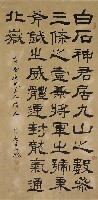 白石神君居九山之數參
三條之壹兼將軍之號秉
斧鉞之威體連封龍氣通
北嶽